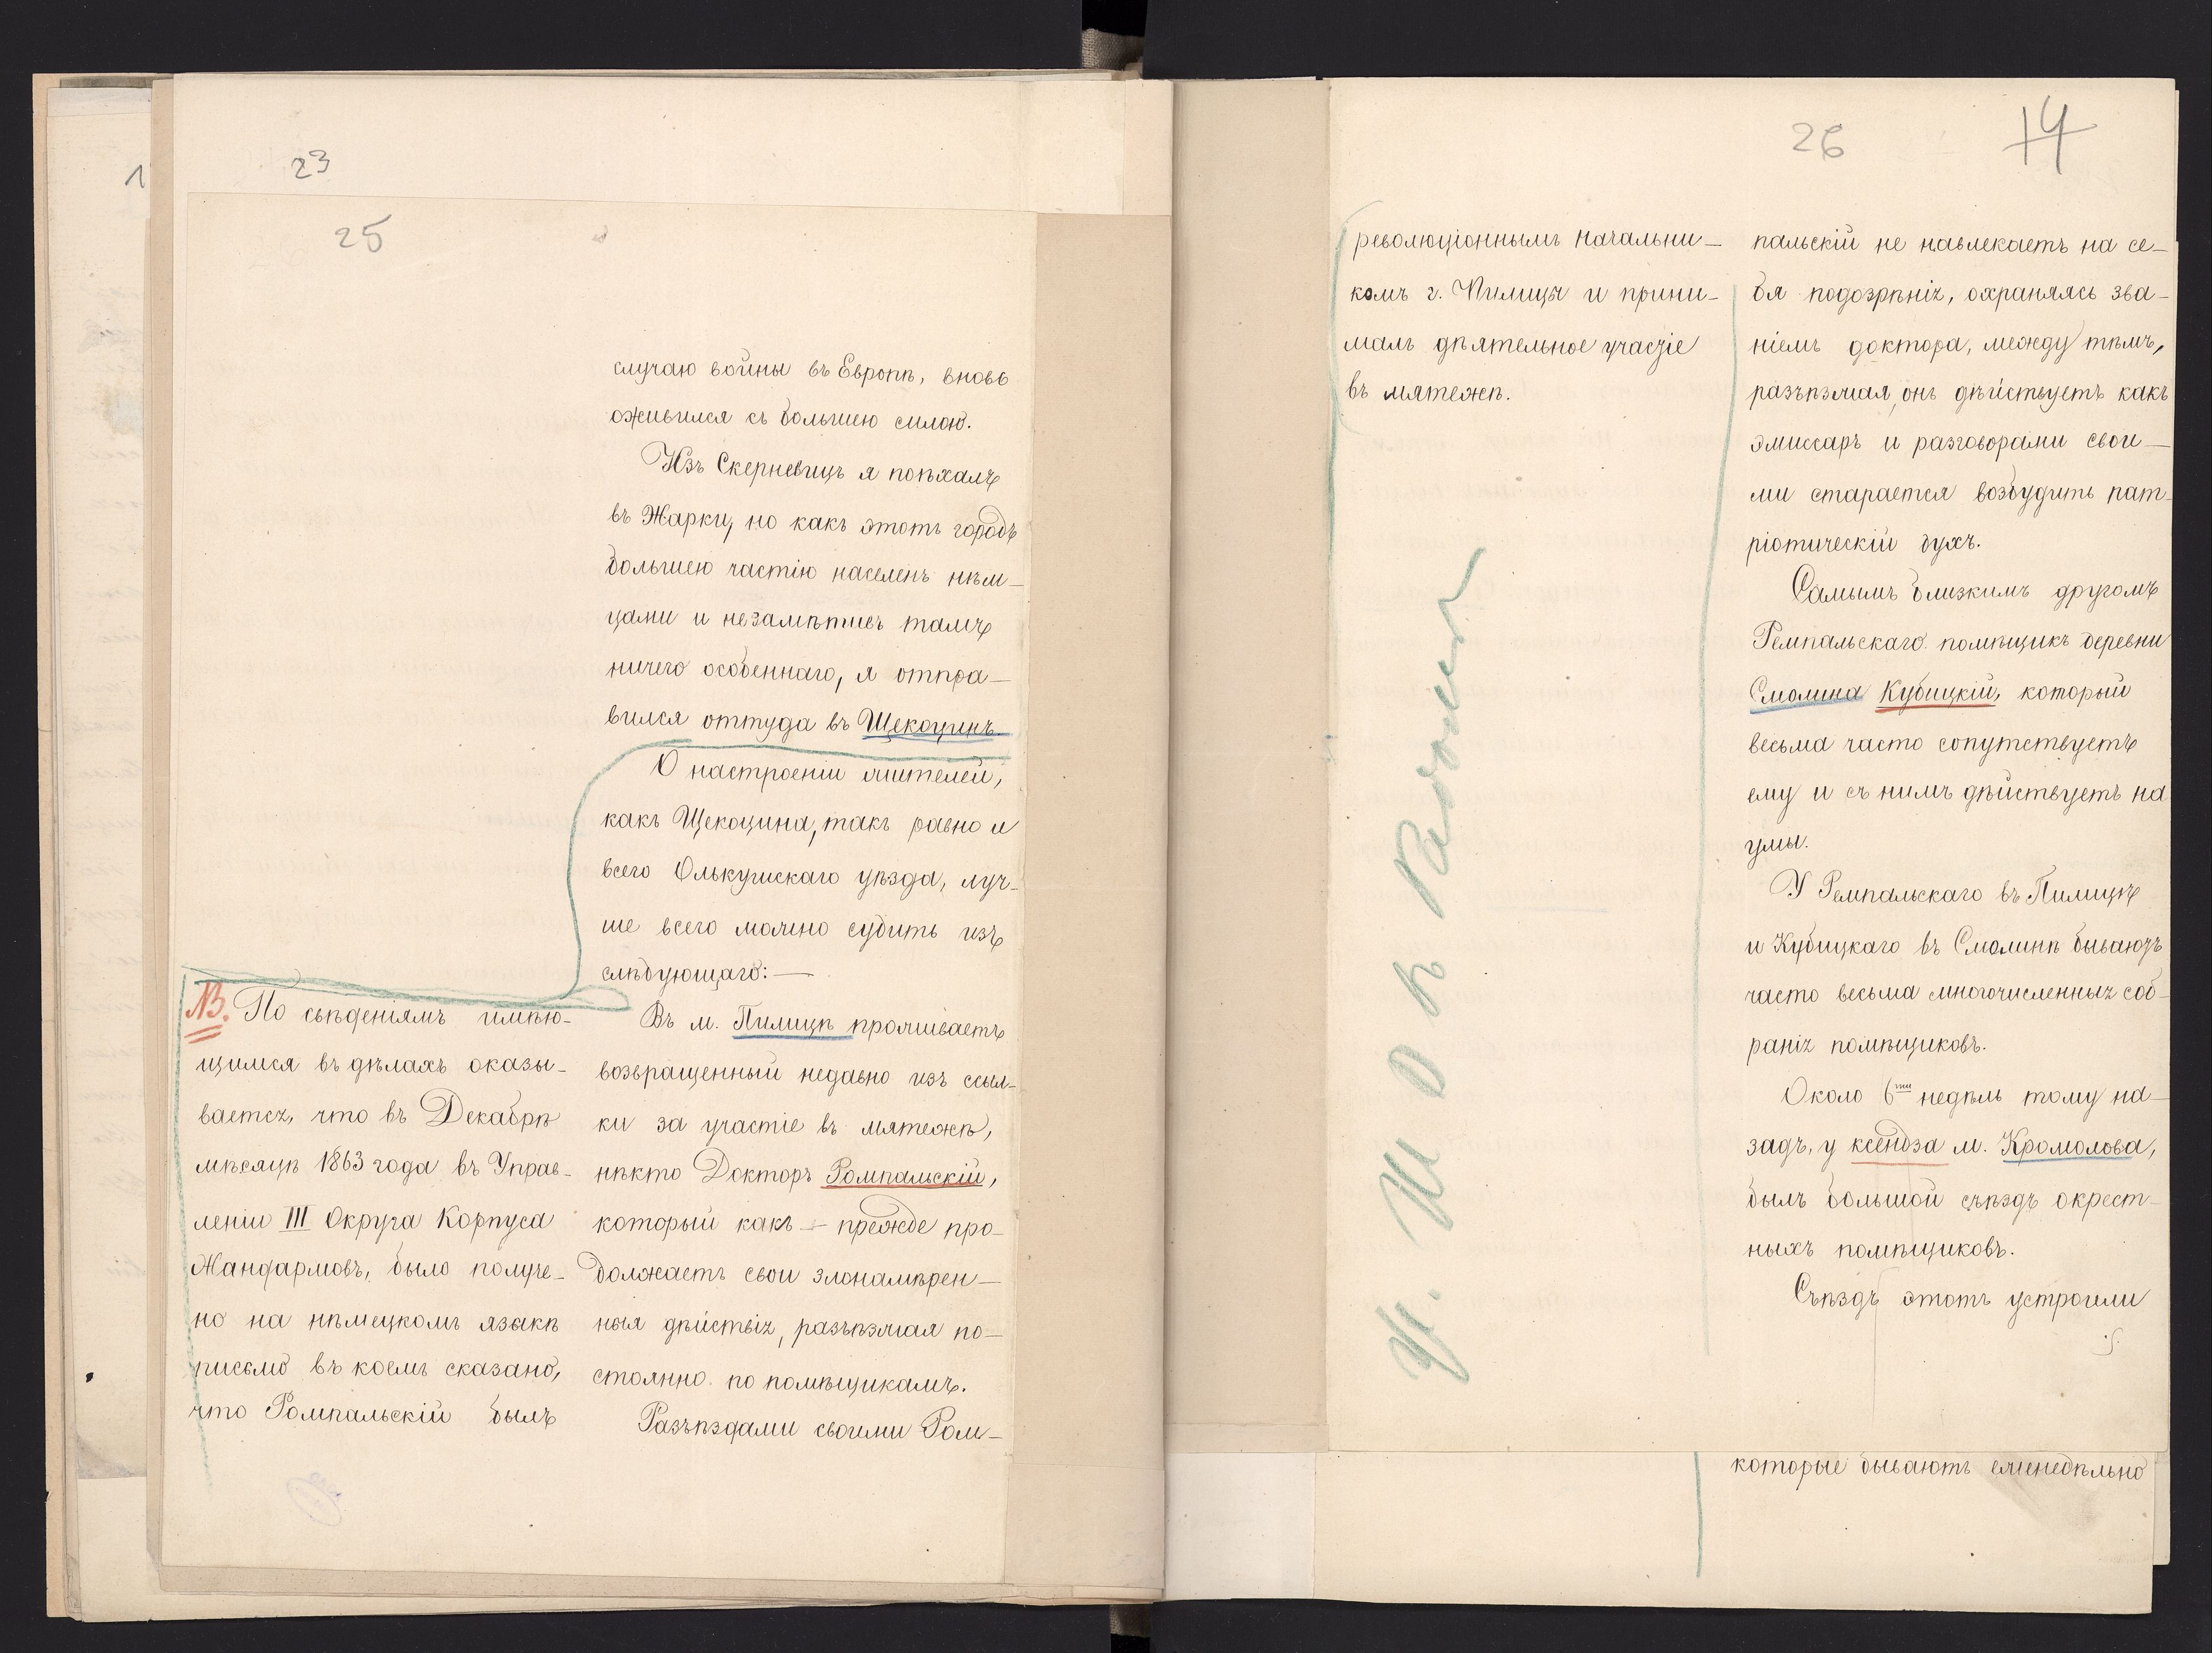 23
25
случаю войны въ Европѣ, вновь
оживился съ большею силою.
Изъ Скерневицъ я поѣхалъ
въ Жарки, но какъ этотъ городъ
большею частію населенъ нѣм-
цами и незамѣтивъ тамъ
ничего особеннаго, я отпра-
вился оттуда въ Щекоцинъ.
О настроеніи жителей,
какъ Щекоцина, такъ равно и
всего Олькушскаго уѣзда, луч-
ше всего можно судить изъ
слѣдующаго:—
Въ м. Пилицѣ проживаетъ
возвращенный недавно изъ ссыл-
ки за участіе въ мятежѣ,
нѣкто Докторъ Ромпальскій,
который какъ — прежде про-
должаетъ свои злонамѣрен-
ныя дѣйствія, разъѣзжая по-
стоянно по помѣщикамъ.
Разъѣздами своими Ром-
NB. По свѣдѣніямъ имѣю-
щимся въ дѣлахъ оказы-
вается, что въ Декабрѣ
мѣсяцѣ 1863 года въ Управ-
леніи III Округа Корпуса
Жандармовъ, было получе-
но на нѣмецкомъ языкѣ
письмо въ коемъ сказано,
что Ромпальскій былъ
26
14
революціоннымъ начальни-
комъ г. Пилицы и прини-
малъ дѣятельное участіе
въ мятежѣ.
пальскій не навлекаетъ на се-
бя подозрѣнія, охраняясь зва-
ніемъ доктора, между тѣмъ,
разъѣзжая, онъ дѣйствуетъ какъ
эмиссаръ и разговорами свои-
ми старается возбудить пат-
ріотическій духъ.
Самымъ близкимъ другомъ
Ремпальскаго помѣщикъ деревни
Смолина Кубицкій, который
весьма часто сопутствуетъ
ему и съ нимъ дѣйствуетъ на
умы.
У Ремпальскаго въ Пилицѣ
и Кубицкаго въ Смолинѣ бываютъ
часто весьма многочисленныя соб-
ранія помѣщиковъ.
Около 6ти недѣль тому на-
задъ, у ксендза м. Кромолова,
былъ большой съѣздъ окрест-
ныхъ помѣщиковъ.
Съѣздъ этотъ устроили
которые бываютъ еженедѣльно